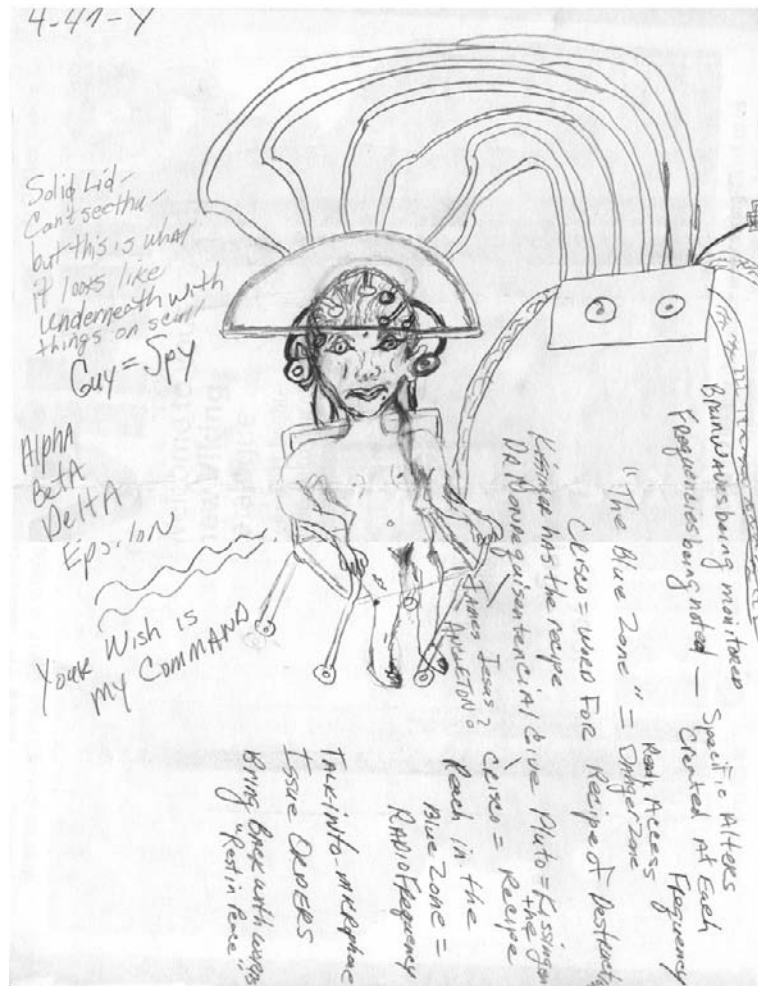 4-47-Y
Solid Lid-
Can't see thru-
but this is what
it looks like
underneath with
things on scull
Guy = Spy
Alpha
Beta
Delta
Epsilon
Your Wish is
My Command
Brainwaves being monitored
Frequencies being noted — Specific Alters
Created At Each
Frequency
Ready Access
"The Blue Zone" = Danger Zone
Crisco = Word For Recipe of Destruction
Kissinger has the recipe
Dr. in CIA give Pluto = Kissinger
the
Crisco = Recipe
James Jesus?
Angleton?
Reach in the
Blue Zone =
Radio Frequency
Talk into microphone
Issue Orders
Bring Back with words
"Rest in Peace"